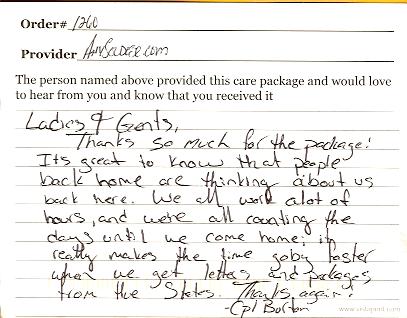 Order# 1260
Provider AnySoldier.com
The person named above provided this care package and would love
to hear from you and know that you received it
Ladies & Gents,
Thanks so much for the package!
Its great to know that people
back home are thinking about us
back here. We all work alot of
hours, and we're all counting the
days until we come home; it
really makes the time goby faster
when we get letters and packages
from the States. Thanks again!
-Cpl Burton